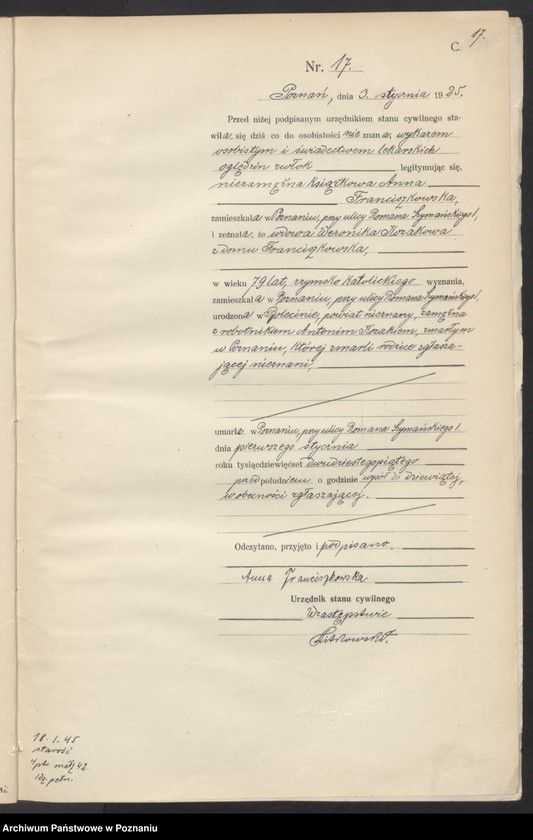 17.
C.
Nr. 17.
Poznań, dnia 3. stycznia 1925.
Przed niżej podpisanym urzędnikiem stanu cywilnego sta-
wiła się dziś co do osobistości nie znana, wykazem
osobistym i świadectwem lekarskich
oględzin zwłok legitymując się,
niezamężna książkowa Anna
Franciszkowska,
zamieszkała w Poznaniu, przy ulicy Romana Szymańskiego 1,
i zeznała, że wdowa Weronika Kozakowa
z domu Franciszkowska,
w wieku 79 lat, rzymsko katolickiego wyznania,
zamieszkała w Poznaniu, przy ulicy Romana Szymańskiego 1,
urodzona w powiat nieznany, zamężna
z robotnikiem Antonim Kozakiem, zmarłym
w Poznaniu, której zmarli rodzice zgłasza-
jącej nieznani,
umarła w Poznaniu, przy ulicy Romana Szymańskiego 1
dnia pierwszego stycznia
roku tysiądziewięćset dwudziestegopiątego
przed południem o godzinie wpół do dziewiątej,
w obecności zgłaszającej.
Odczytano, przyjęto i podpisano.
Anna Franciszkowska
Urzędnik stanu cywilnego
W zastępstwie
18. 1. 45
starość
Archiwum Państwowe w Poznaniu